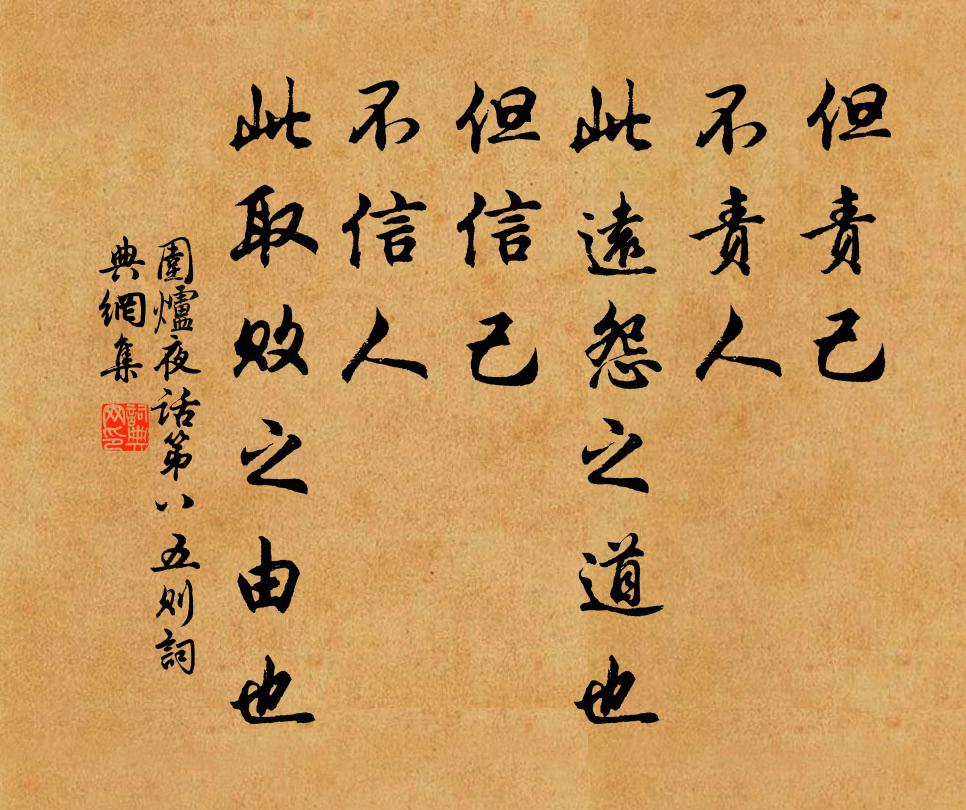 但責己
不責人
此遠怨之道也
但信己
不信人
此取敗之由也
圍爐夜話第八五則詞
典網集
詞典
网印